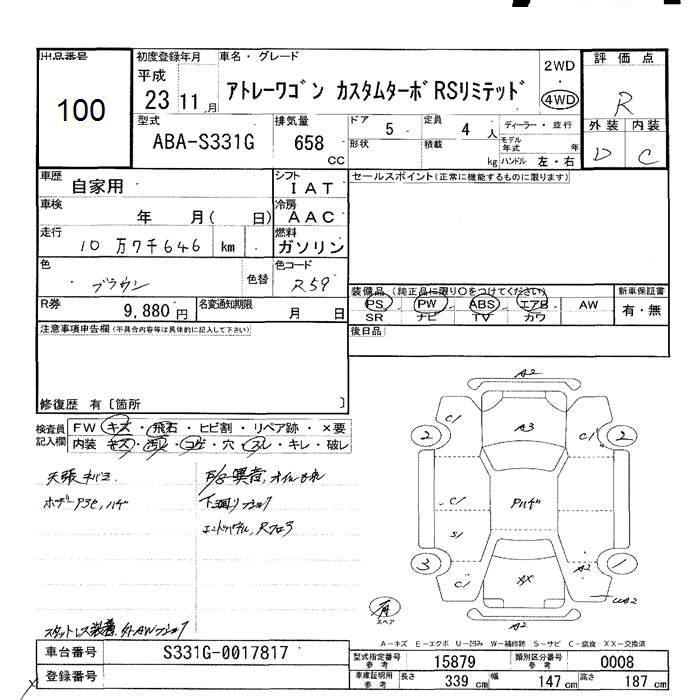 出品番号 初度登録年月 車名・グレード 2WD 評価点
100 平成 23 11月 アトレーワゴン カスタムターボRSリミテッド ・ 4WD R
型式 排気量 ドア 5 定員 4人 ディーラー・並行 外装 内装
ABA-S331G 658 CC 形状 積載 kg モデル年式 年 ハンドル 左・右 D C
車歴 自家用 シフト IAT セールスポイント(正常に機能するものに限ります)
車検 年 月( 日) 冷房 AAC
走行 10万7千646 km 燃料 ガソリン
色 ブラウン 色替 色コード R59
装備品 (純正品に限り○をつけてください) 新車保証書
PS PW ABS エアB AW 有・無
SR ナビ TV カワ
R券 9,880円 名変通知期限 月 日
後日品
注意事項申告欄(不具合内容等は具体的に記入して下さい)
修復歴 有〔箇所 〕
検査員記入欄 FW キズ・飛石・ヒビ割・リペア跡・×要
内装 キズ・汚レ・コゲ・穴・スレ・キレ・破レ
天張キバミ
ボデーアラセ,ハゲ
下廻りフショク
エンドパネル,Rフロア
スタットレス装着
A2
C1 A3 C1
2 2
C1 Pハゲ
S1
3 A2 1
C1 XX UA2
A2
スペア
A-キズ E-エクボ U-凹み W-補修跡 S-サビ C-腐食 XX-交換済
車台番号 S331G-0017817
登録番号
型式指定番号 参考 15879 類別区分番号 参考 0008
車庫証明用 参考 長さ 339 cm 幅 147 cm 高さ 187 cm